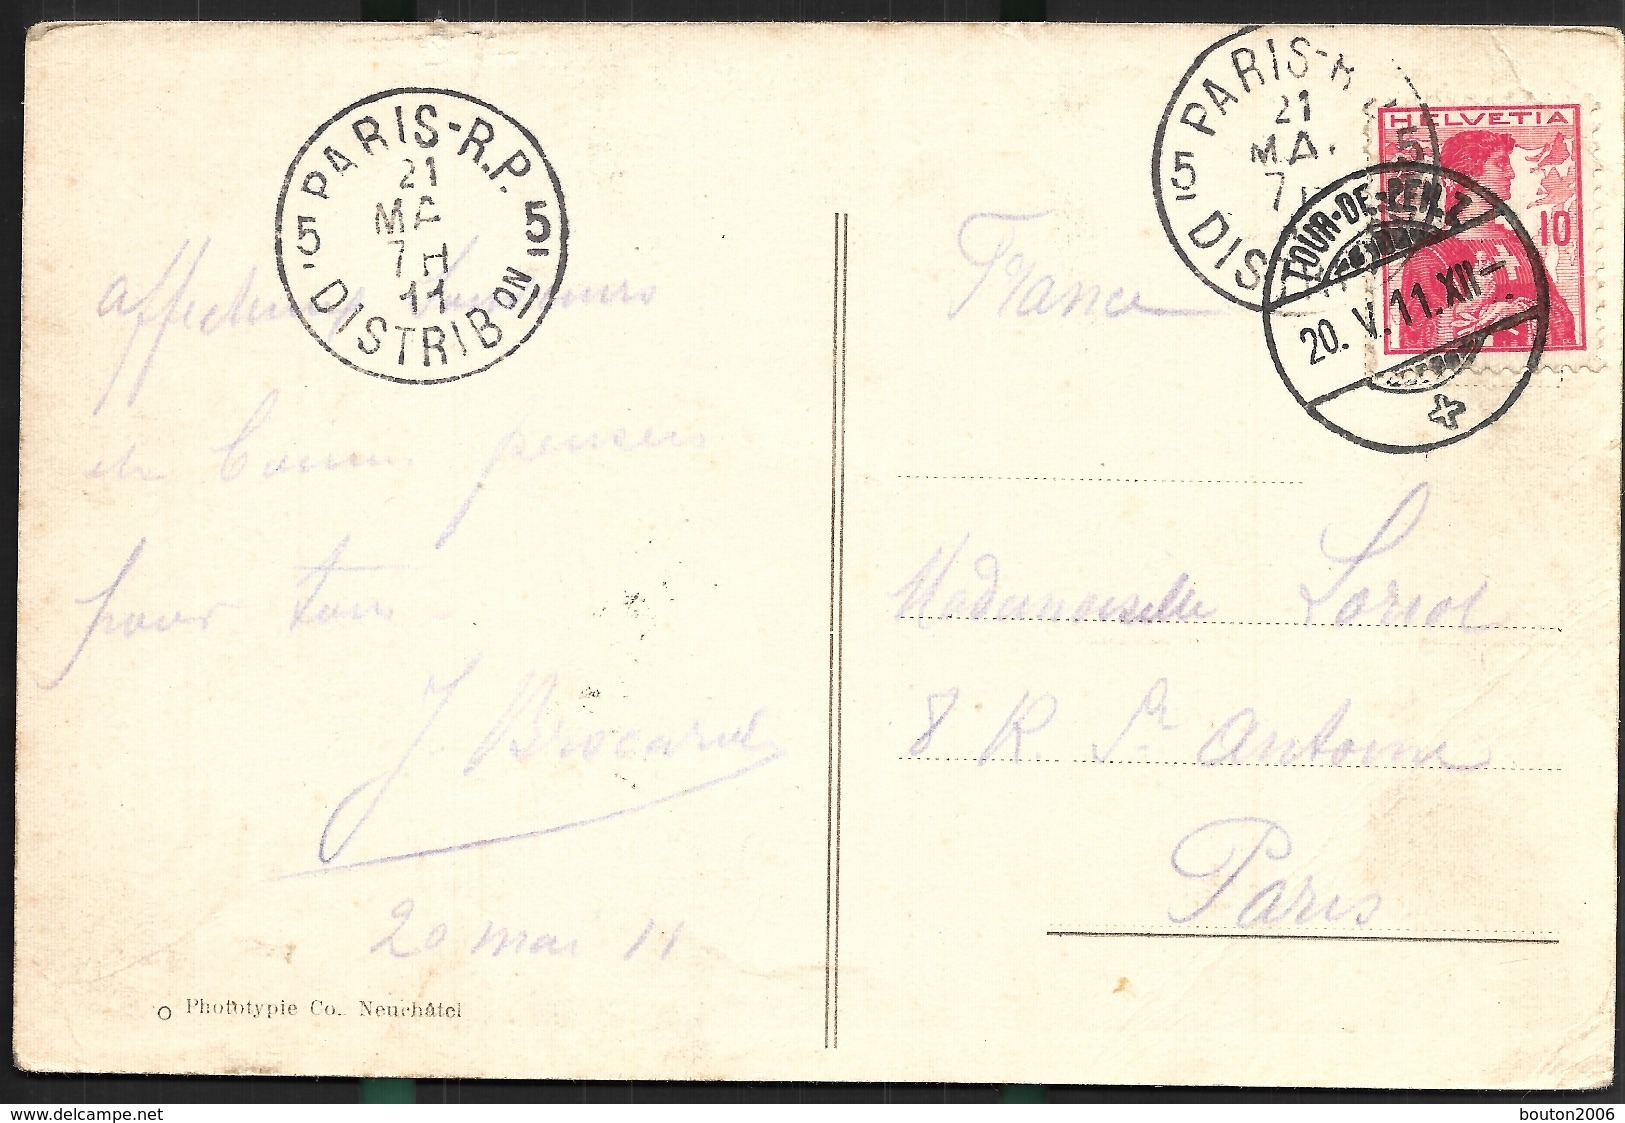 PARIS-R.P.
5 5
21
MA
7H
11
DISTRIB ON
affectueux
pensers
pour tous
J. Brocard
20 mai 11
Phototypie Co. Neuchâtel
PARIS-R
5 5
21
MA.
7
DIS
HELVETIA
10
TOUR-DE-PEILZ
20. V. 11. XII–
France
Mademoiselle Loriot
8 R. St Antoine
Paris
delcampe.net
bouton2006